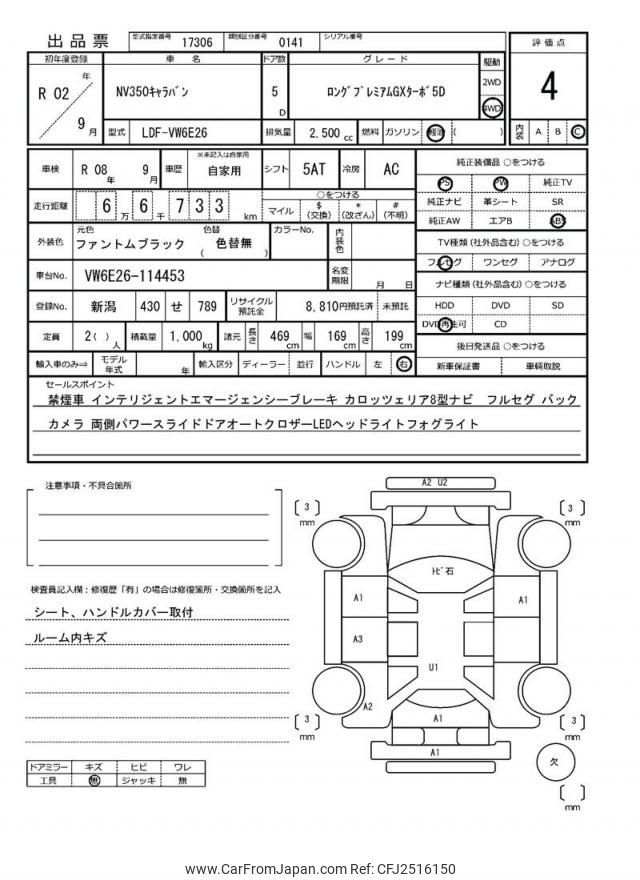 出品票 型式指定番号 17306 類別区分番号 0141 シリアル番号
評価点
4
初年度登録 車名 ドア数 グレード 駆動
R 02 年 9 月 NV350キャラバン 5 D ロングプレミアムGXターボ5D 2WD 4WD
型式 LDF-VW6E26 排気量 2,500 cc 燃料 ガソリン 軽油 ( ) 内装 A B C
車検 R 08 年 9 月 車歴 ※未記入は自家用 自家用 シフト 5AT 冷房 AC
走行距離 6 6 万 7 3 3 千 km ○をつける マイル $ (交換) * (改ざん) # (不明)
外装色 元色 ファントムブラック 色替 色替無 ( ) カラーNo. 内装色
車台No. VW6E26-114453 名変期限 月 日
登録No. 新潟 430 せ 789 リサイクル預託金 8,810円預託済 未預託
定員 2( )人 積載量 1,000 kg 諸元 長さ 469 cm 幅 169 cm 高さ 199 cm
輸入車のみ⇒ モデル年式 年 輸入区分 ディーラー 並行 ハンドル 左 右
純正装備品 ○をつける
PS PW 純正TV
純正ナビ 革シート SR
純正AW エアB ABS
TV種類 (社外品含む) ○をつける
フルセグ ワンセグ アナログ
ナビ種類 (社外品含む) ○をつける
HDD DVD SD
DVD再生可 CD
後日発送品 ○をつける
新車保証書 車輌取説
セールスポイント
禁煙車 インテリジェントエマージェンシーブレーキ カロッツェリア8型ナビ フルセグ バック
カメラ 両側パワースライドドアオートクロザーLEDヘッドライトフォグライト
注意事項・不具合箇所
検査員記入欄：修復歴「有」の場合は修復箇所・交換箇所を記入
シート、ハンドルカバー取付
ルーム内キズ
ドアミラー キズ ヒビ ワレ
工具 無 ジャッキ 無
A2 U2
3 mm
3 mm
トビ石
A1
A1
A3
U1
A2
A1
A1
3 mm
3 mm
欠
mm
www.CarFromJapan.com Ref: CFJ2516150